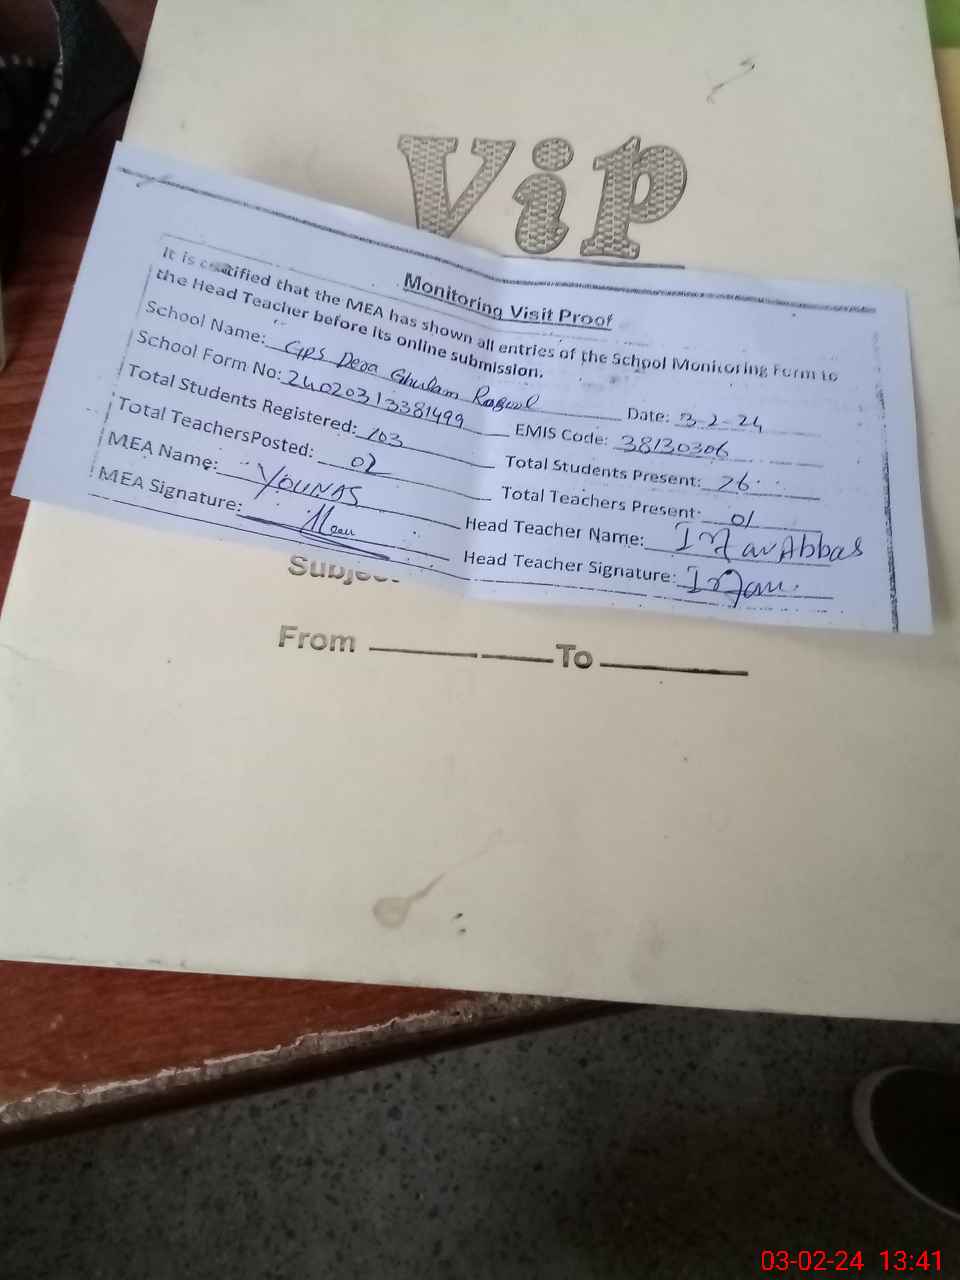 Vip
Monitoring Visit Proof
It is certified that the MEA has shown all entries of the School Monitoring Form to
the Head Teacher before its online submission.
School Name: GPS Dera Ghulam Rasool Date: 3-2-24
School Form No: 24020313381499 EMIS Code: 38130306
Total Students Registered: 103 Total Students Present: 76
Total TeachersPosted: 02 Total Teachers Present: 01
MEA Name: YOUNAS Head Teacher Name: Abbas
MEA Signature: Head Teacher Signature:
From To
03-02-24 13:41